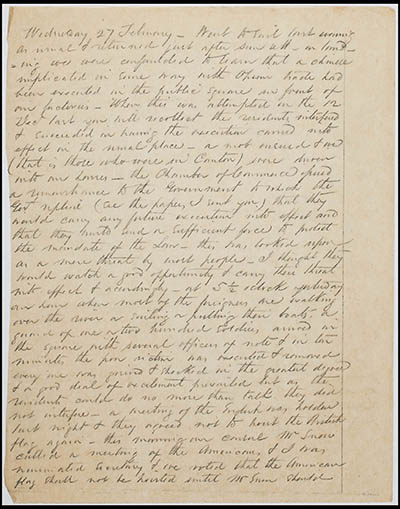 Wednesday 27 February - Went to Sail last evening
as usual & returned just after sun set - on land-
-ing we were confounded to learn that a chinese
implicated in some way with Opium trade had
been executed in the public square in front of
our factories - When this was attempted on the 12
Dec last you will recollect the residents interfered
& succeeded in having the execution carried into
effect in the usual place - a mob ensued & we
(that is those who were in Canton) were driven
into our houses - the Chamber of Commerce offered
a remonstrance to the Government to which the
Govt replied (see the papers I send you) that they
would carry any future execution into effect and
that they would send a sufficient force to protect
the mandate of the Law - this was looked upon
as a mere threat by most people - I thought they
would watch a good opportunity & carry their threat
into effect & accordingly - at 5½ oclock yesterday
an hour when most of the foreigners are walking
over the river or sailing or pulling their boats, a
guard of one or two hundred soldiers arrived in
the square with several officers of note & in ten
minutes the poor victim was executed & removed
every one was grieved & shocked in the greatest degree
& a good deal of excitement prevailed but as the
residents could do no more than talk they did
not interfere - a meeting of the English was holden
last night & they agreed not to hoist the British
flag again - this morning our consul Mr Snow
called a meeting of the Americans & I was
nominated Secretary & we voted that the American
flag shall not be hoisted until Mr Snow should